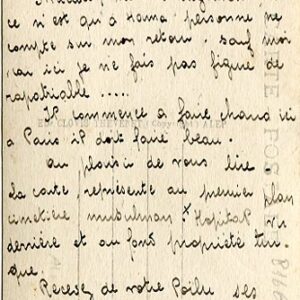 ce n'est qu'à Hama personne ne
compte sur mon retour. sauf moi
car ici je ne fais pas figure de
rapatriable .....
Il commence a faire chaud ici
a Paris il doit faire beau.
au plaisir de vous lire
la carte représente au premier plan
cimetière musulman x Hopital
derrière et au fond propriété tur-
que.
Recevez de votre Poilu ses